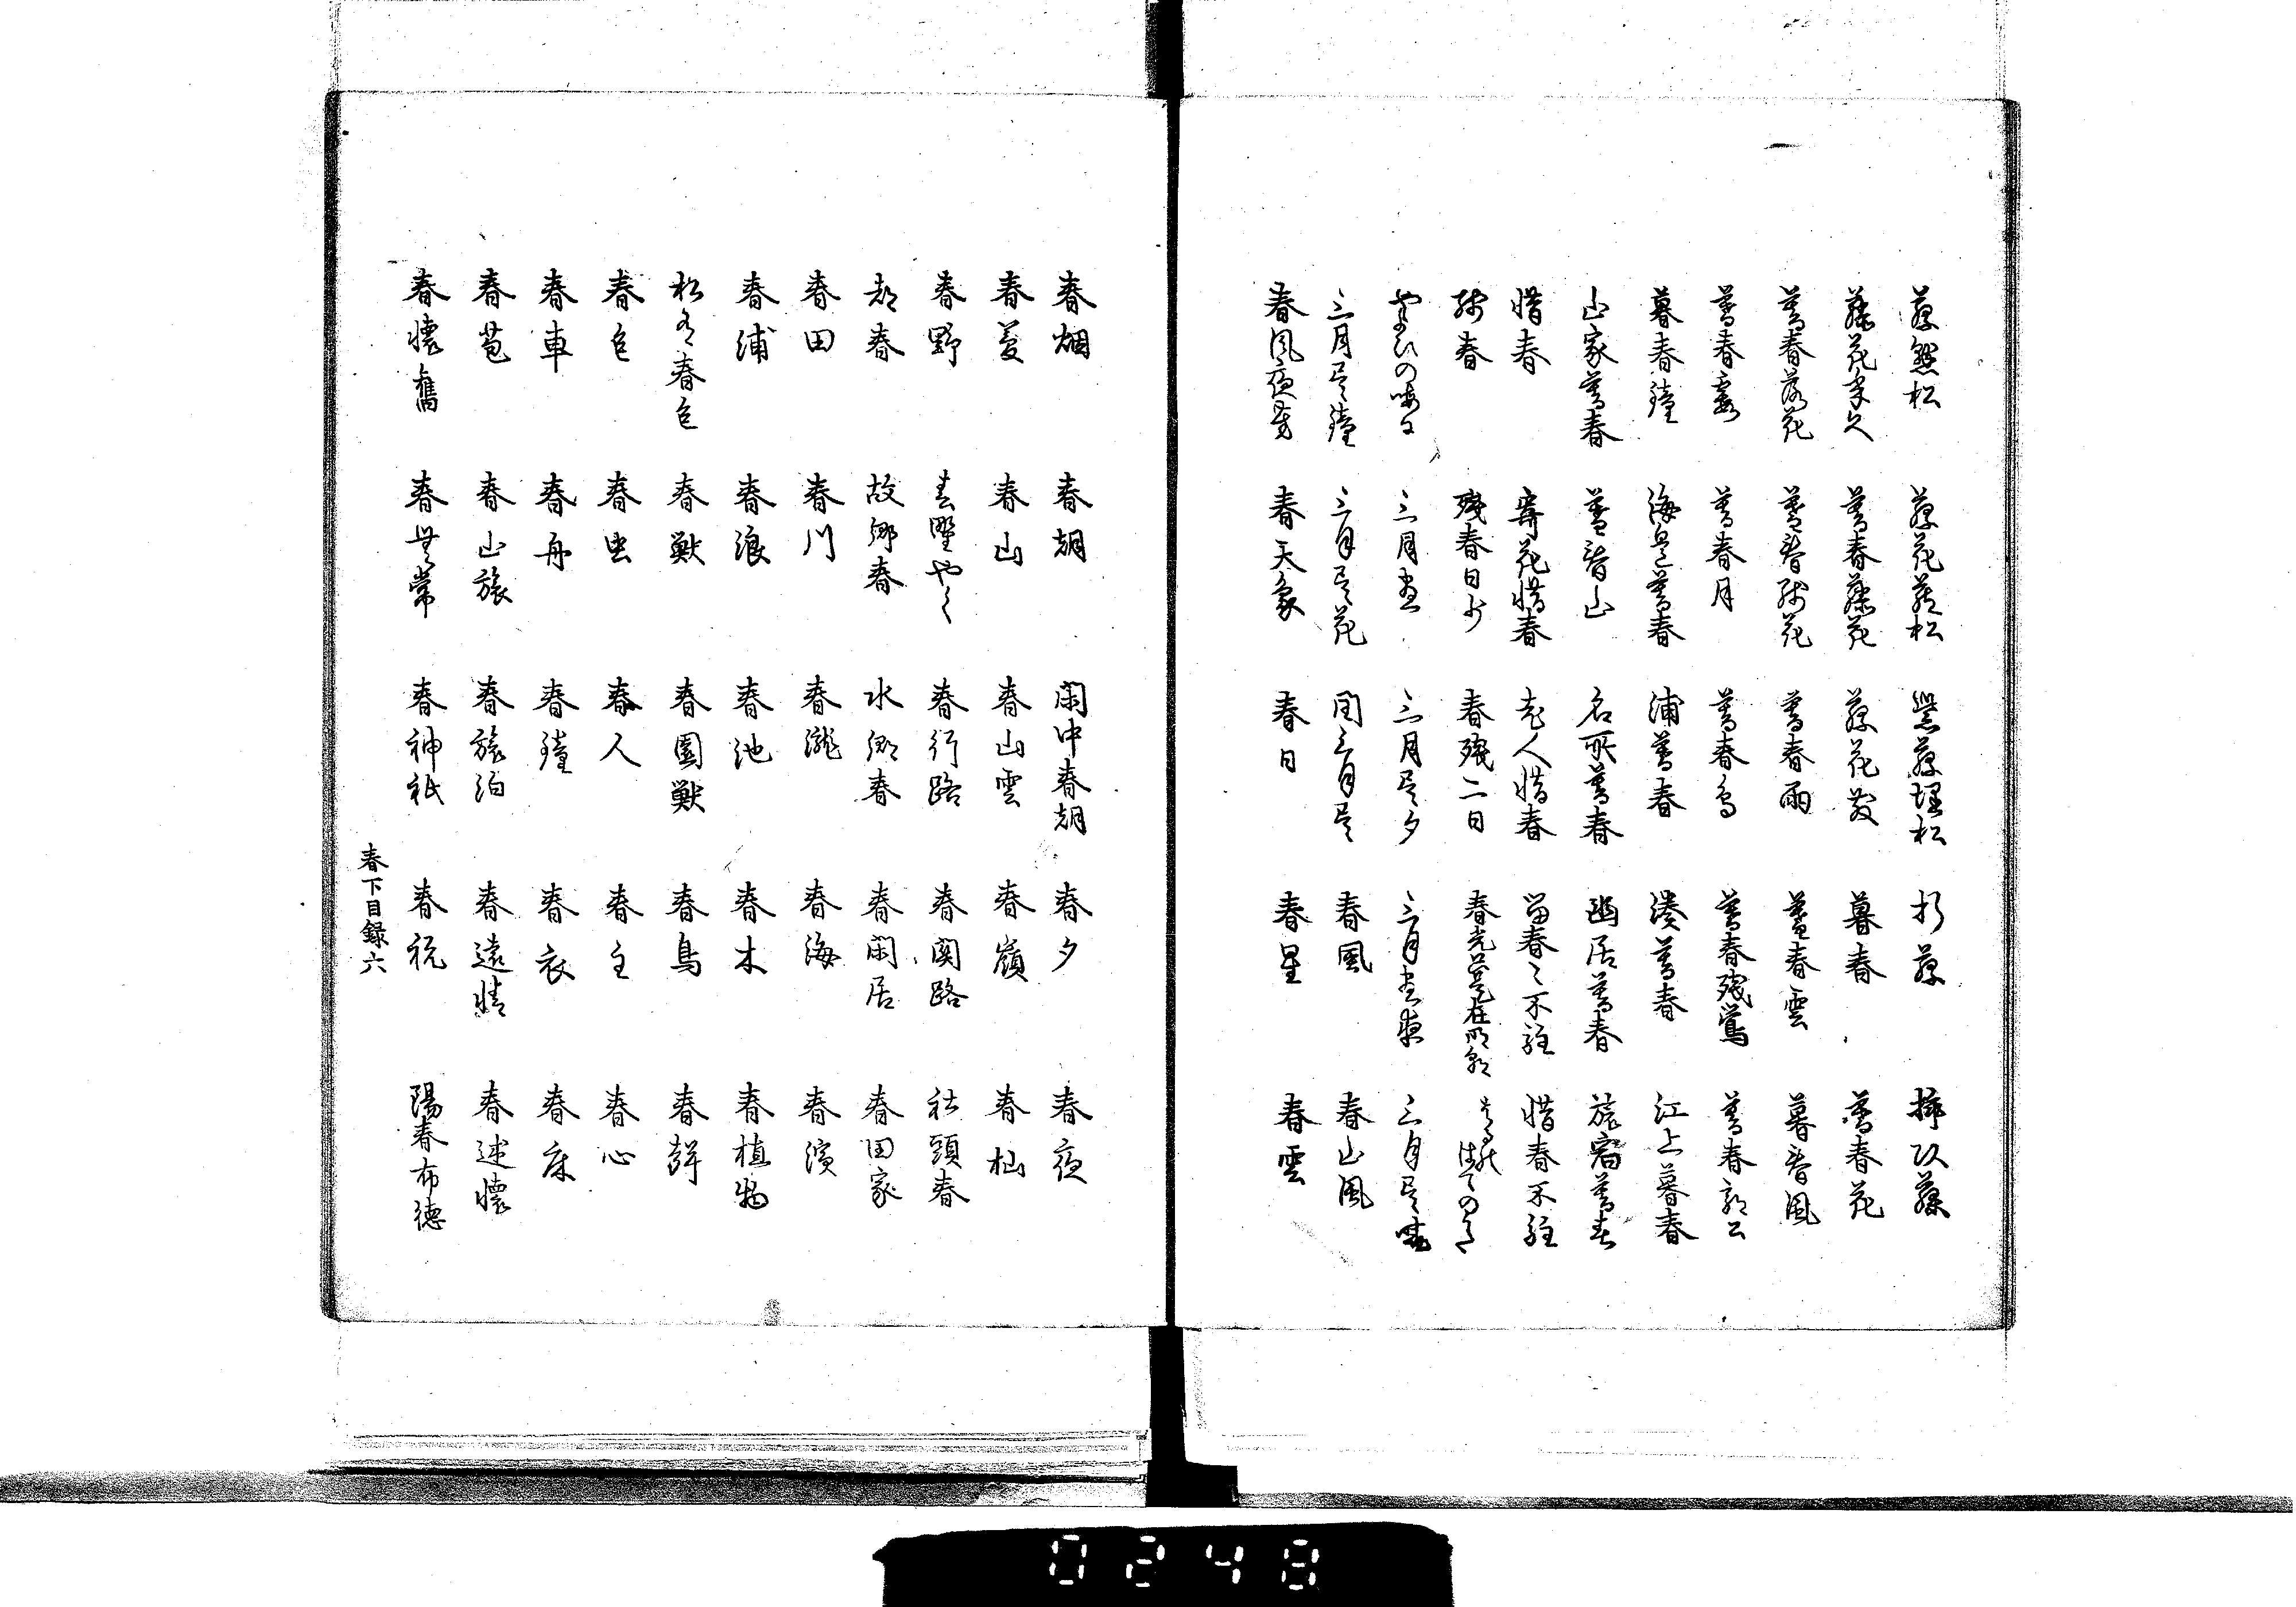 藤懸松 藤花落松 紫藤埋松 折藤 挿頭藤
藤花年久 暮春藤花 藤花散 暮春 暮春花
暮春落花 暮春残花 暮春雨 暮春雲 暮春風
暮春霞 暮春月 暮春鳥 暮春残鶯 暮春郭公
暮春鐘 海邊暮春 浦暮春 湊暮春 江上暮春
山家暮春 暮春山 名所暮春 幽居暮春 旅宿暮春
惜春 寄花惜春 老人惜春 留春々不駐 惜春不駐
残春 残春日少 春残二日 春光莫在明朝 はてのはる
やよひの晦日 三月尽 三月尽夕 三月尽夜 三月尽暁
三月尽鐘 三月尽花 閏三月尽 春風 春山風
春風夜芳 春天象 春日 春星 春雲
春烟 春朝 閑中春朝 春夕 春夜
春夢 春山 春山雲 春嶺 春杣
春野 春野やく 春行路 春関路 社頭春
都春 故郷春 水郷春 春閑居 春田家
春田 春川 春瀧 春海 春濱
春浦 春浪 春池 春木 春植物
松有春色 春獣 春園獣 春鳥 春蕣
春色 春虫 春人 春主 春心
春車 春舟 春鐘 春衣 春床
春苞 春山旅 春旅泊 春遠情 春述懐
春懐舊 春無常 春神祇 春祝 陽春布徳
春下目録六
0248